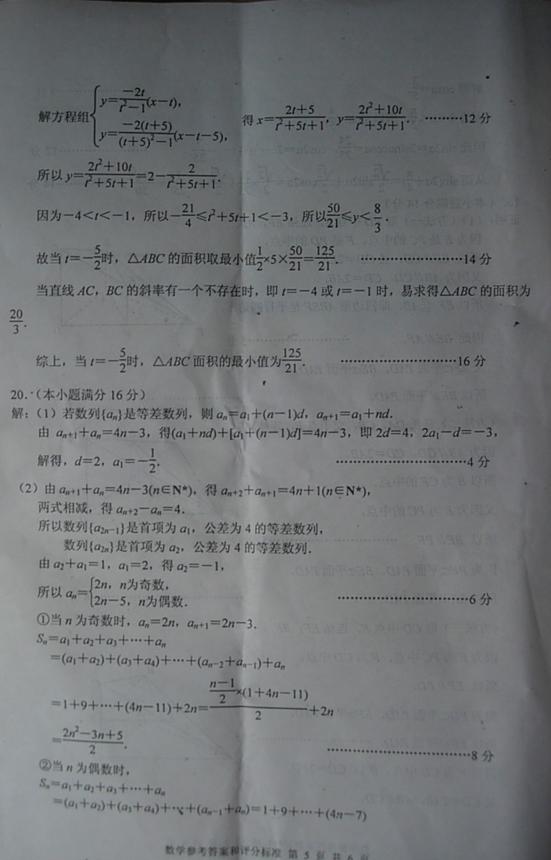 解方程组{y=\frac{-2t}{t²-1}(x-t), y=\frac{-2(t+5)}{(t+5)²-1}(x-t-5), 得 x=\frac{2t+5}{t²+5t+1}, y=\frac{2t²+10t}{t²+5t+1}. ………12 分
所以 y=\frac{2t²+10t}{t²+5t+1}=2-\frac{2}{t²+5t+1}.
因为-4<t<-1，所以-\frac{21}{4}≤t²+5t+1<-3，所以\frac{50}{21}≤y<\frac{8}{3}.
故当 t=-\frac{5}{2}时，△ABC 的面积取最小值\frac{1}{2}×5×\frac{50}{21}=\frac{125}{21}. ………………14 分
当直线 AC，BC 的斜率有一个不存在时，即 t=-4 或 t=-1 时，易求得△ABC 的面积为
\frac{20}{3}.
综上，当 t=-\frac{5}{2}时，△ABC 面积的最小值为\frac{125}{21}. ………………16 分
20.（本小题满分 16 分）
解：（1）若数列{aₙ}是等差数列，则 aₙ=a₁+(n-1)d，aₙ₊₁=a₁+nd.
由 aₙ₊₁+aₙ=4n-3，得(a₁+nd)+[a₁+(n-1)d]=4n-3，即 2d=4，2a₁-d=-3，
解得，d=2，a₁=-\frac{1}{2}. ………………4 分
（2）由 aₙ₊₁+aₙ=4n-3(n∈N*)，得 aₙ₊₂+aₙ₊₁=4n+1(n∈N*)，
两式相减，得 aₙ₊₂-aₙ=4.
所以数列{a₂ₙ₋₁}是首项为 a₁，公差为 4 的等差数列，
数列{a₂ₙ}是首项为 a₂，公差为 4 的等差数列.
由 a₂+a₁=1，a₁=2，得 a₂=-1，
所以 aₙ={2n，n为奇数， 2n-5，n为偶数. ………………6 分
①当 n 为奇数时，aₙ=2n，aₙ₊₁=2n-3.
Sₙ=a₁+a₂+a₃+⋯+aₙ
=(a₁+a₂)+(a₃+a₄)+⋯+(aₙ₋₂+aₙ₋₁)+aₙ
=1+9+⋯+(4n-11)+2n=\frac{\frac{n-1}{2}×(1+4n-11)}{2}+2n
=\frac{2n²-3n+5}{2}. ………………8 分
②当 n 为偶数时，
Sₙ=a₁+a₂+a₃+⋯+aₙ
=(a₁+a₂)+(a₃+a₄)+⋯+(aₙ₋₁+aₙ)=1+9+⋯+(4n-7)
数学参考答案和评分标准 第 5 页 共 6 页